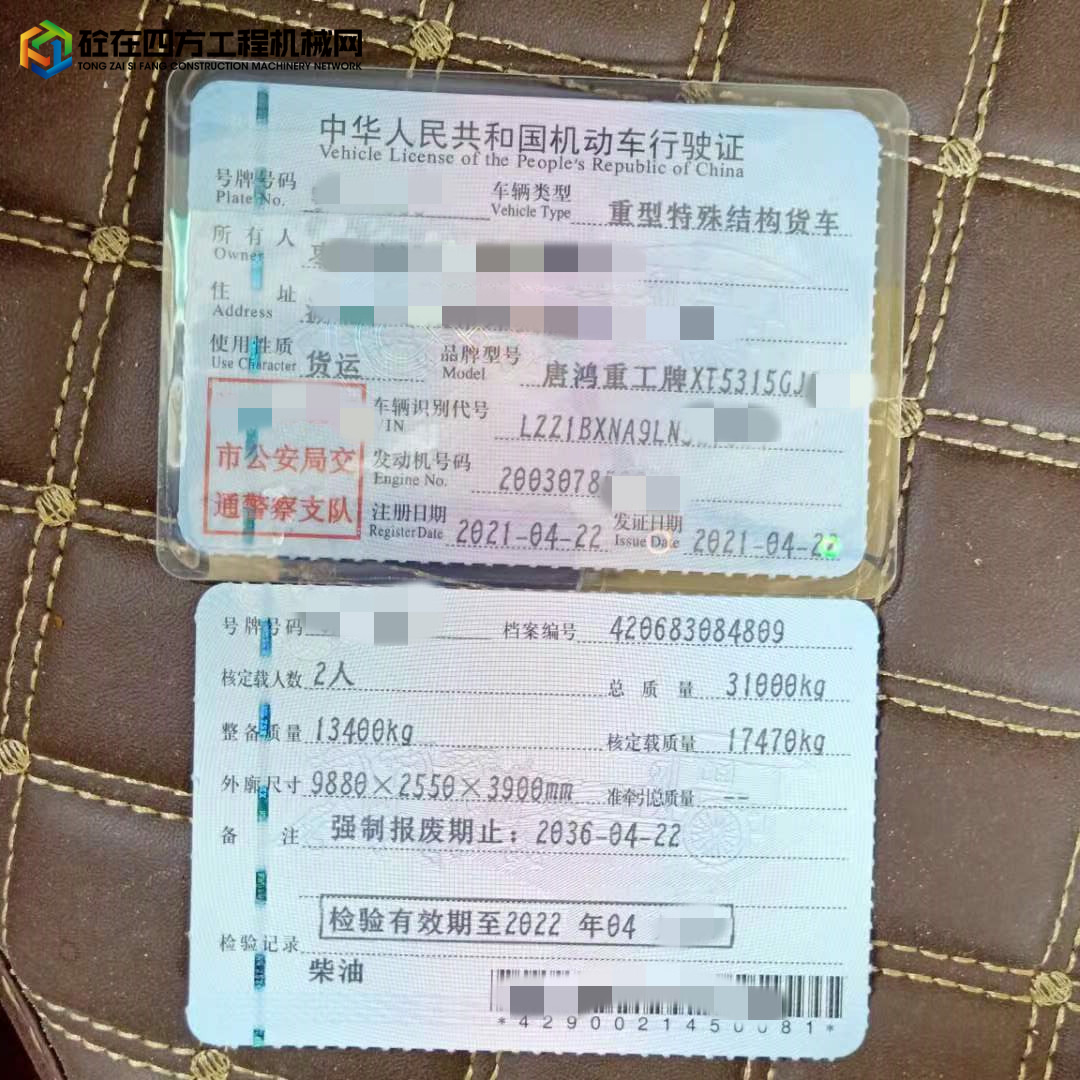 砼在四方工程机械网
TONG ZAI SI FANG CONSTRUCTION MACHINERY NETWORK
中华人民共和国机动车行驶证
Vehicle License of the People's Republic of China
号牌号码 车辆类型 重型特殊结构货车
Plate No. Vehicle Type
所有人
Owner
住址
Address
使用性质 货运 品牌型号 唐鸿重工牌XT5315GJ
Use Character Model
车辆识别代号 LZZ1BXNA9LN
IN
市公安局交 发动机号码 2003078
Engine No.
通警察支队 注册日期 2021-04-22 发证日期 2021-04-22
Register Date Issue Date
号牌号码 档案编号 420683084809
核定载人数 2人 总质量 31000kg
整备质量 13400kg 核定载质量 17470kg
外廓尺寸 9880×2550×3900mm 准牵引总质量 --
备注 强制报废期止：2036-04-22
检验有效期至2022 年04
检验记录
柴油
*4290021450081*